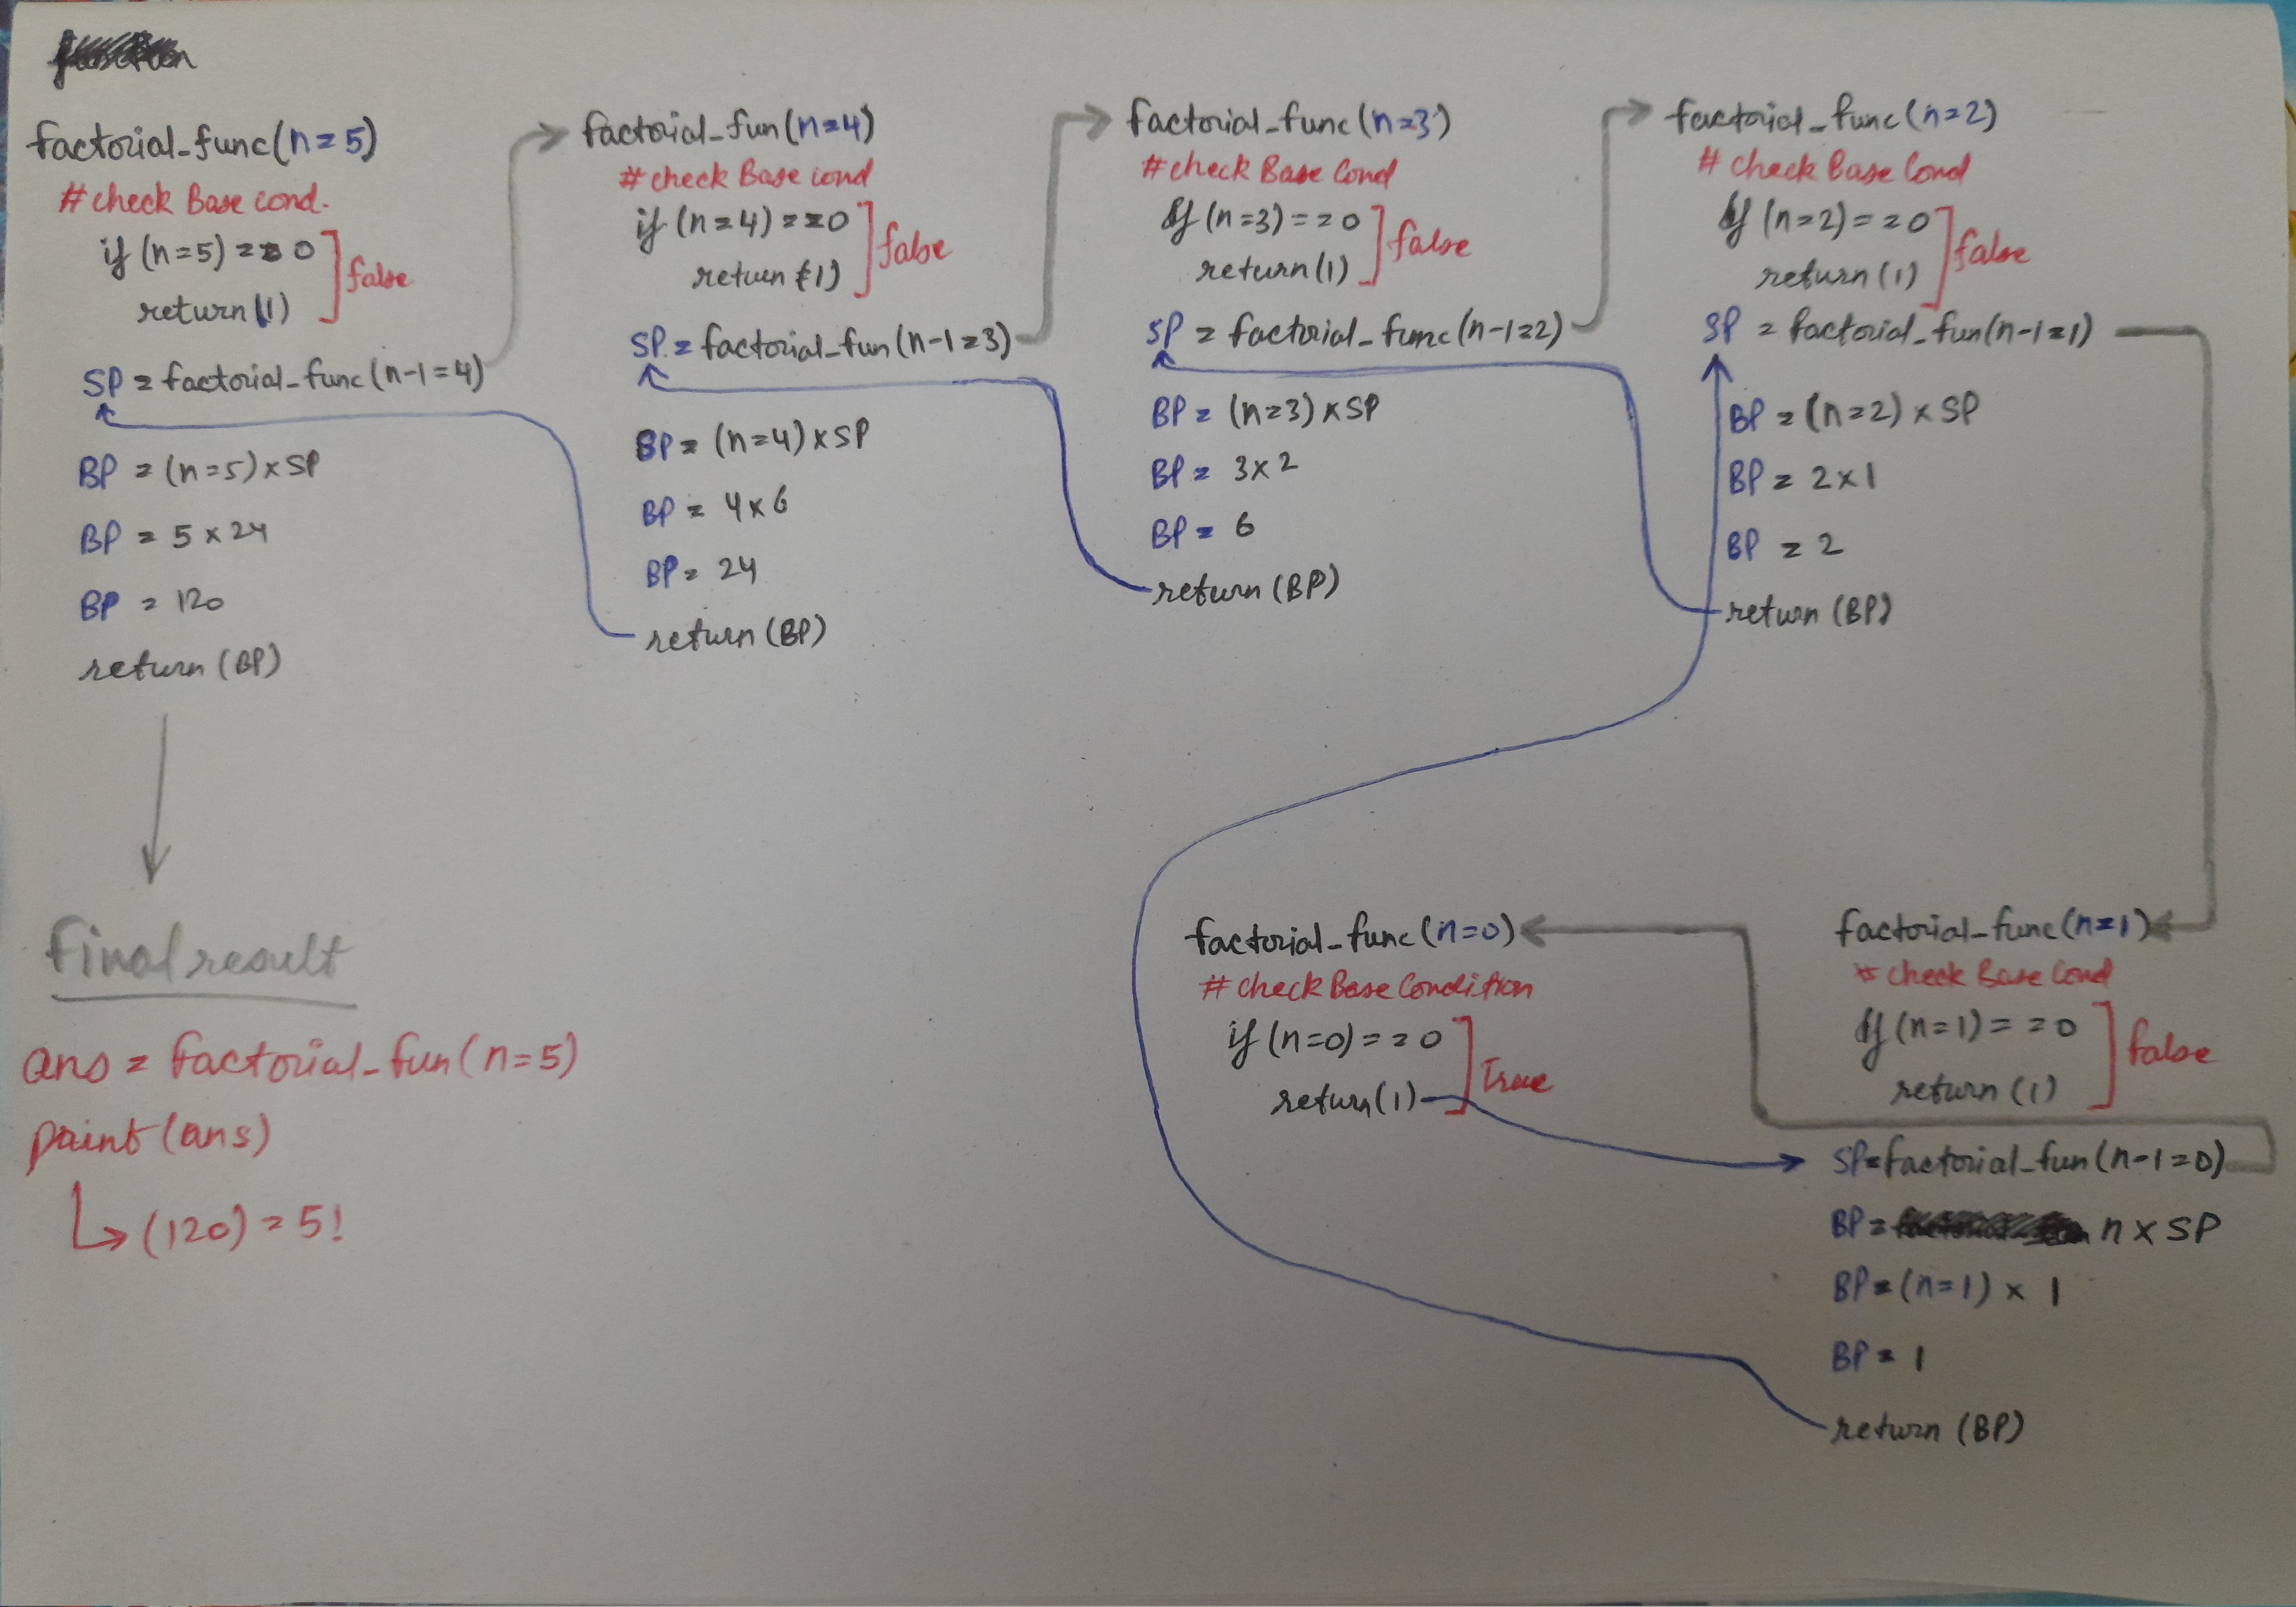 factorial_func(n=5)
# check Base cond.
if (n=5) == 0
return(1)
false
SP = factorial_func(n-1=4)
BP = (n=5) x SP
BP = 5 x 24
BP = 120
return (BP)
factorial_fun(n=4)
# check Base cond
if (n=4) == 0
return (1)
false
SP = factorial_fun(n-1=3)
BP = (n=4) x SP
BP = 4 x 6
BP = 24
return (BP)
factorial_func(n=3)
# check Base Cond
If (n=3) == 0
return(1)
false
SP = factorial_func(n-1=2)
BP = (n=3) x SP
BP = 3 x 2
BP = 6
return (BP)
factorial_func(n=2)
# check Base Cond
If (n=2) == 0
return (1)
false
SP = factorial_fun(n-1=1)
BP = (n=2) x SP
BP = 2 x 1
BP = 2
return (BP)
factorial_func(n=1)
# check Base Cond
If (n=1) == 0
return (1)
false
SP=factorial_fun(n-1=0)
BP = n x SP
BP = (n=1) x 1
BP = 1
return (BP)
factorial_func(n=0)
# check Base Condition
if (n=0) == 0
return(1)
True
Final result
ans = factorial_fun(n=5)
print(ans)
(120) = 5!